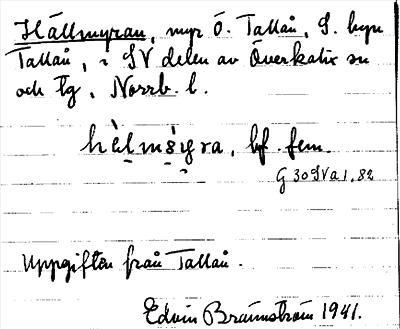 Hällmyran, myr Ö. Tallån, S. byn
Tallån, i SV delen av Överkalix sn
och tg, Norrb. l.
hèlms̀yra, bf. fem.
G 30SVa1,82
Uppgiften från Tallån.
Edvin Brännström 1941.